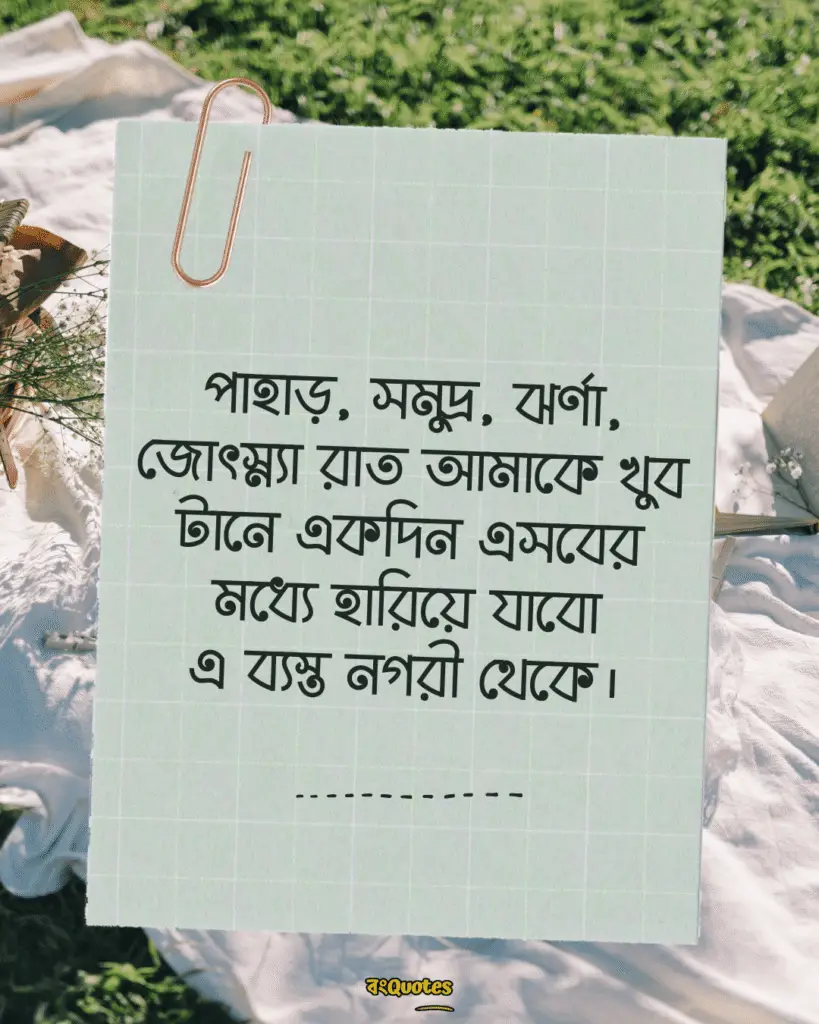 পাহাড়, সমুদ্র, ঝর্ণা,
জোৎস্ন্যা রাত আমাকে খুব
টানে একদিন এসবের
মধ্যে হারিয়ে যাবো
এ ব্যস্ত নগরী থেকে।
বংQuotes